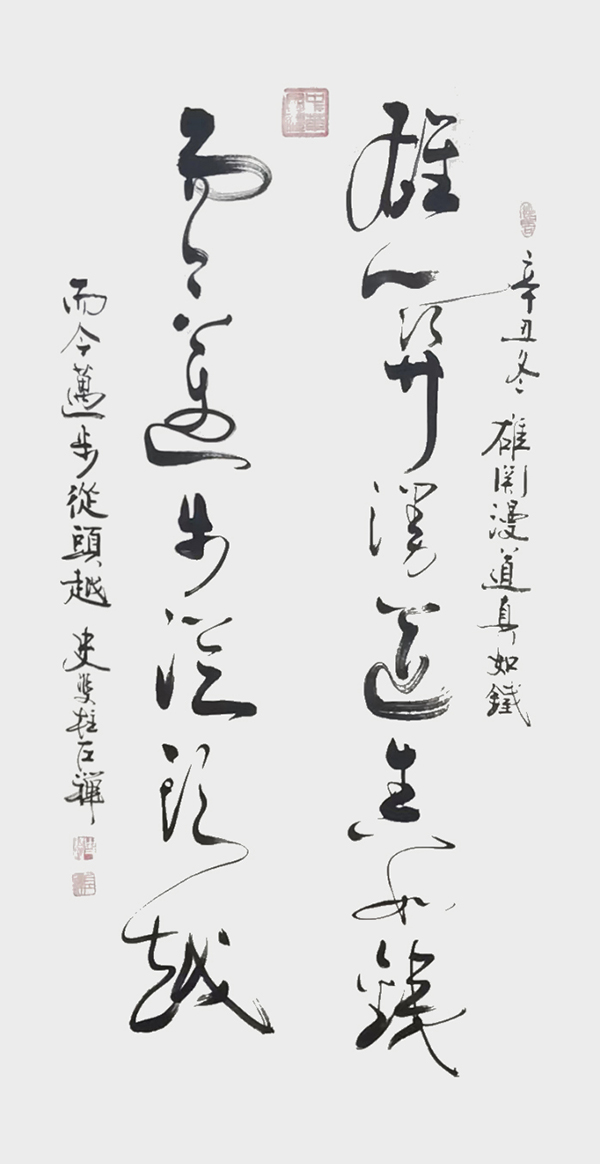 辛丑冬 雄関漫道真如鐵
雄関漫道真如鐵
而今邁步從頭越
而今邁步從頭越 史雙柱左禪